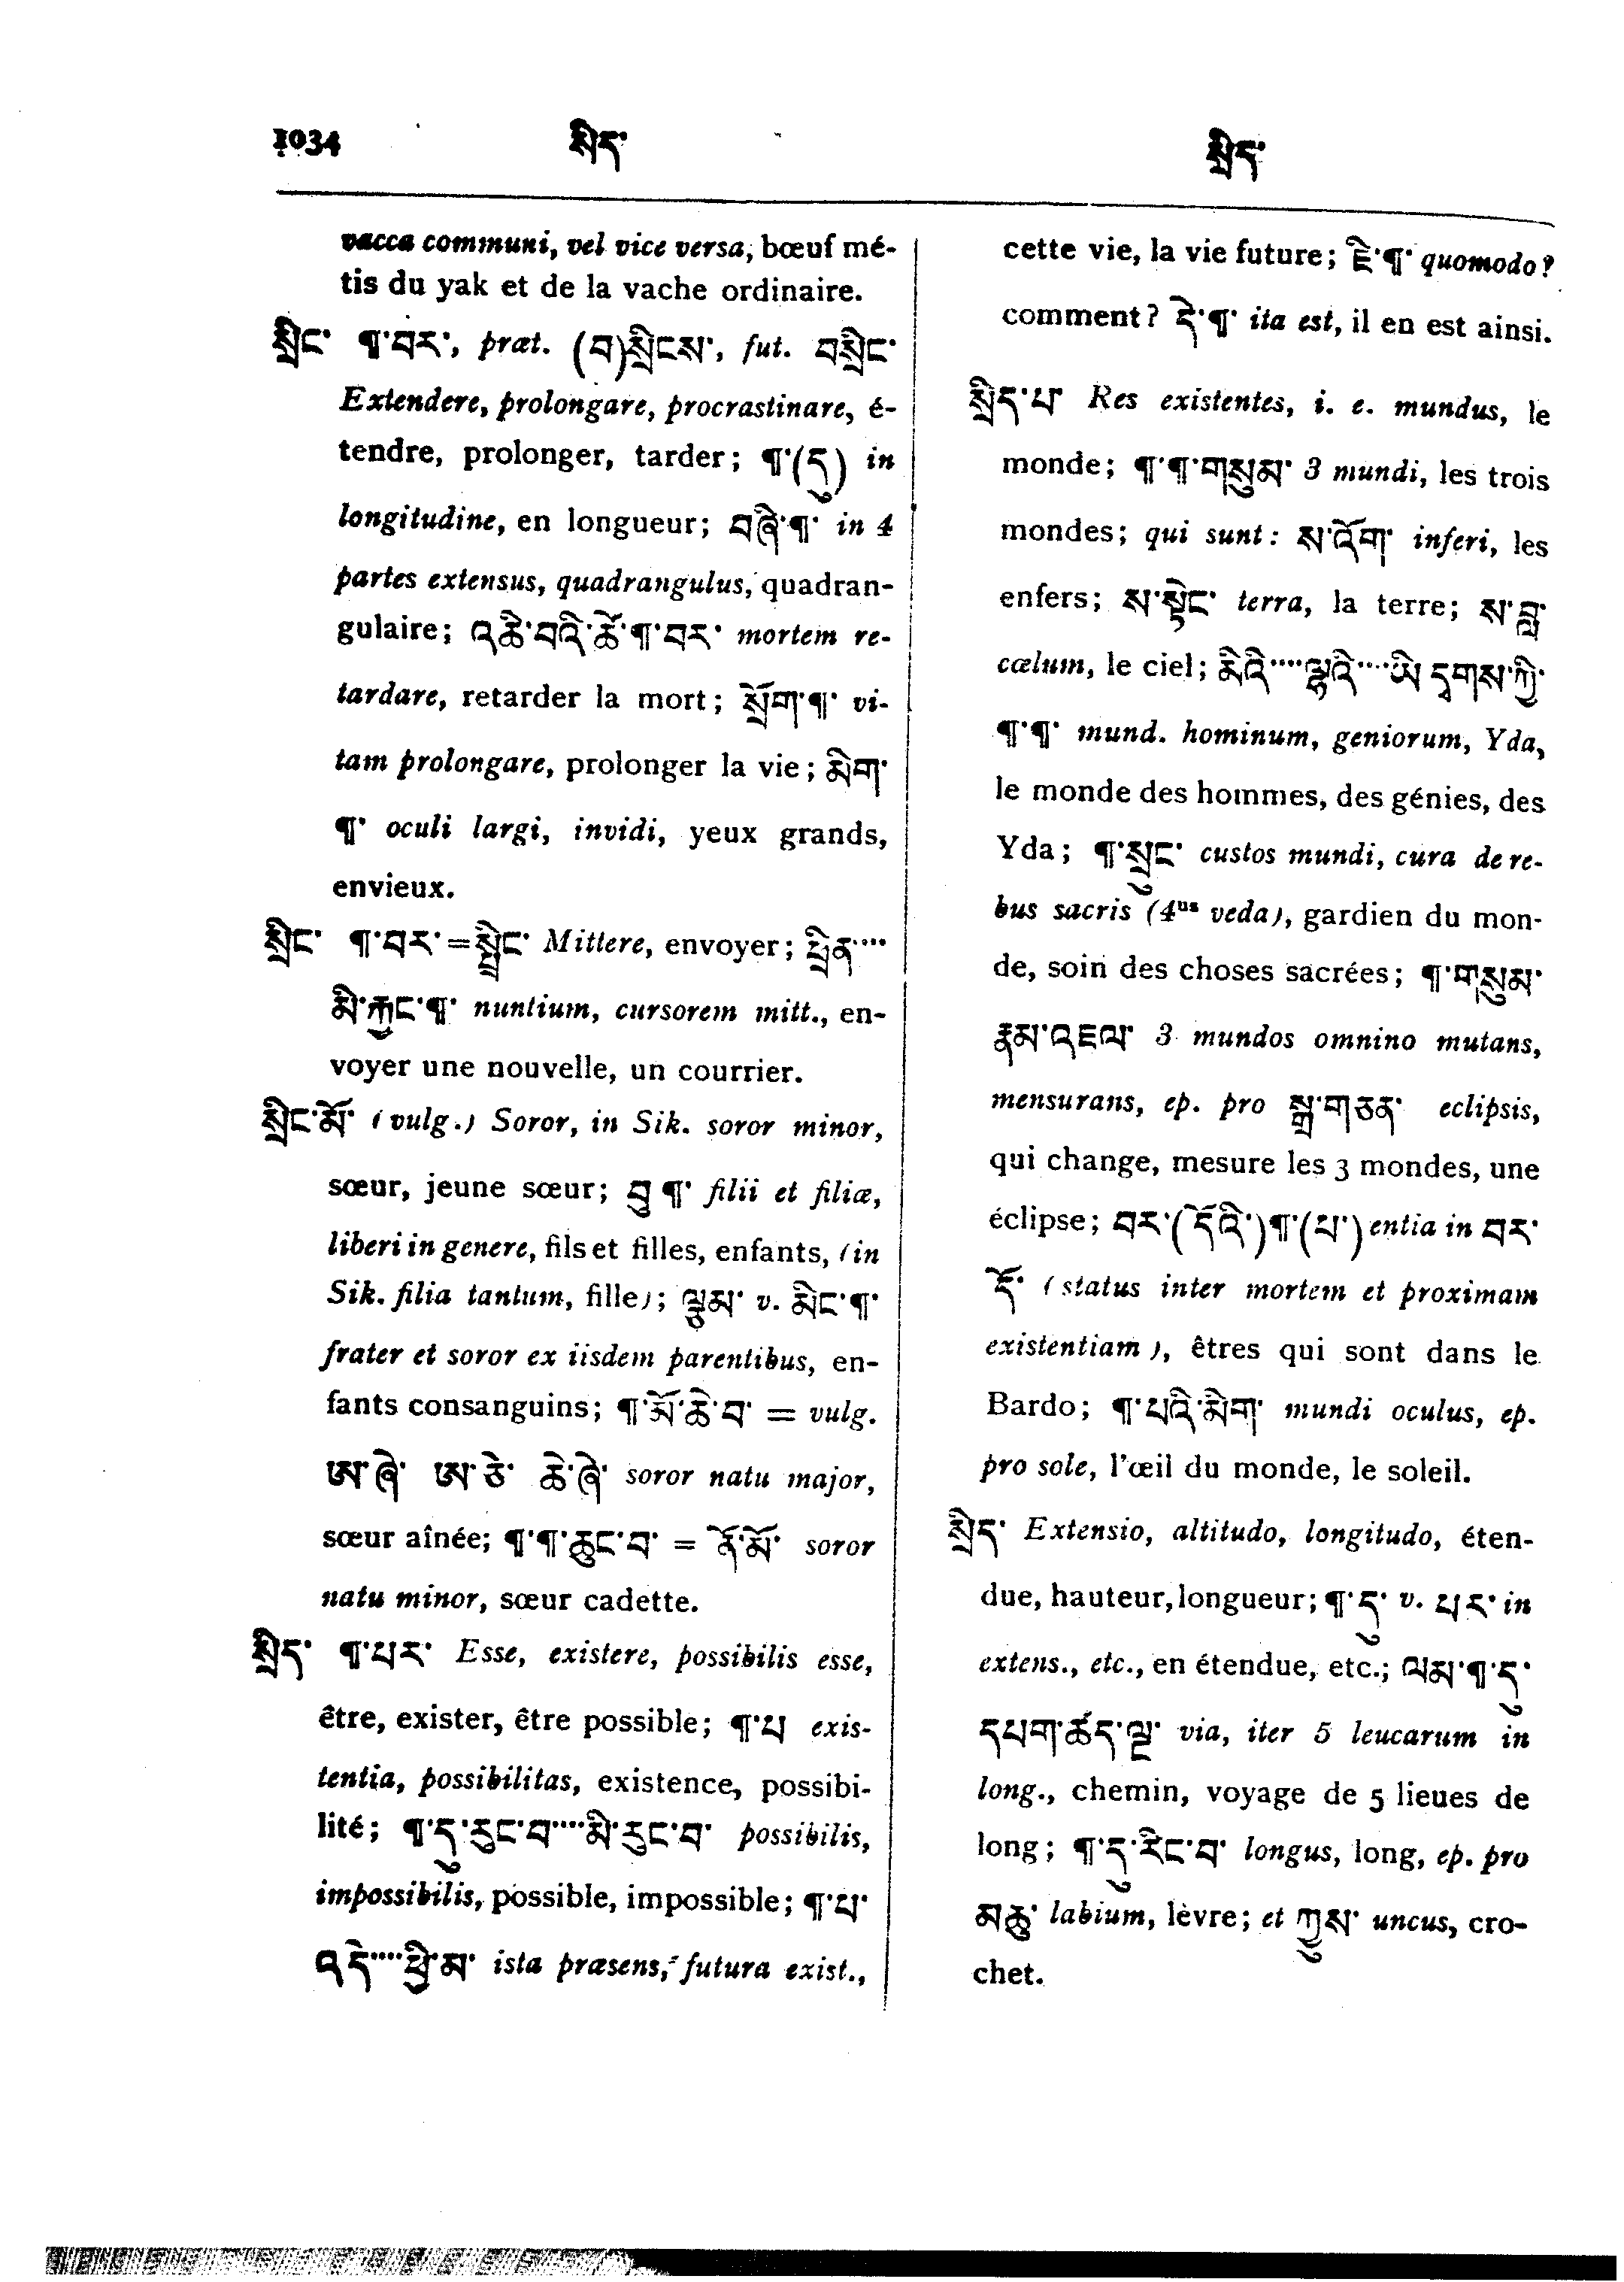 1034 སྲིད་ སྲིད་
vacca communi, vel vice versa, bœuf mé-
tis du yak et de la vache ordinaire.
སྲིང་ ¶་བར་, præt. (བ)སྲིངས་, fut. བསྲིང་
Extendere, prolongare, procrastinare, é-
tendre, prolonger, tarder; ¶་(དུ) in
longitudine, en longueur; བཞི་¶་ in 4
partes extensus, quadrangulus, quadran-
gulaire; འཆི་བའི་ཚོ་¶་བར་ mortem re-
tardare, retarder la mort; སྲོག་¶་ vi-
tam prolongare, prolonger la vie; མིག་
¶་ oculi largi, invidi, yeux grands,
envieux.
སྲིང་ ¶་བར་=སྤྲིང་ Mittere, envoyer; ཕྲིན་····
མི་རྐྱང་¶་ nuntium, cursorem mitt., en-
voyer une nouvelle, un courrier.
སྲིང་མོ་ (vulg.) Soror, in Sik. soror minor,
sœur, jeune sœur; བུ ¶་ filii et filiæ,
liberi in genere, fils et filles, enfants, (in
Sik. filia tantum, fille); ལྕམ་ v. མིང་¶་
frater et soror ex iisdem parentibus, en-
fants consanguins; ¶་མོ་ཆེ་བ་ = vulg.
ཨ་ཞེ་ ཨ་ཅེ་ ཆེ་ཞེ་ soror natu major,
sœur aînée; ¶་¶་ཆུང་བ་ = ནོ་མོ་ soror
natu minor, sœur cadette.
སྲིད་ ¶་པར་ Esse, existere, possibilis esse,
être, exister, être possible; ¶་པ exis-
tentia, possibilitas, existence, possibi-
lité; ¶་དུ་རུང་བ་····མི་རུང་བ་ possibilis,
impossibilis, possible, impossible; ¶་པ་
འདི་····ཕྱི་མ་ ista præsens, futura exist.,
cette vie, la vie future; ཇི་¶་ quomodo?
comment? དེ་¶་ ita est, il en est ainsi.
སྲིད་པ་ Res existentes, i. e. mundus, le
monde; ¶་¶་གསུམ་ 3 mundi, les trois
mondes; qui sunt: ས་འོག་ inferi, les
enfers; ས་སྟེང་ terra, la terre; ས་བླ་
cælum, le ciel; མིའི་····ལྷའི་····ཡི་དྭགས་ཀྱི་
¶་¶་ mund. hominum, geniorum, Yda,
le monde des hommes, des génies, des
Yda; ¶་སྲུང་ custos mundi, cura de re-
bus sacris (4us veda), gardien du mon-
de, soin des choses sacrées; ¶་གསུམ་
རྣམ་འཇལ་ 3 mundos omnino mutans,
mensurans, ep. pro སྒྲ་གཅན་ eclipsis,
qui change, mesure les 3 mondes, une
éclipse; བར་(དོའི་)¶་(པ་) entia in བར་
དོ་ (status inter mortem et proximam
existentiam), êtres qui sont dans le
Bardo; ¶་པའི་མིག་ mundi oculus, ep.
pro sole, l'œil du monde, le soleil.
སྲིད་ Extensio, altitudo, longitudo, éten-
due, hauteur, longueur; ¶་དུ་ v. པར་ in
extens., etc., en étendue, etc.; ལམ་¶་དུ་
དཔག་ཚད་ལྔ་ via, iter 5 leucarum in
long., chemin, voyage de 5 lieues de
long; ¶་དུ་རིང་བ་ longus, long, ep. pro
མཆུ་ labium, lèvre; et ཀྱུས་ uncus, cro-
chet.